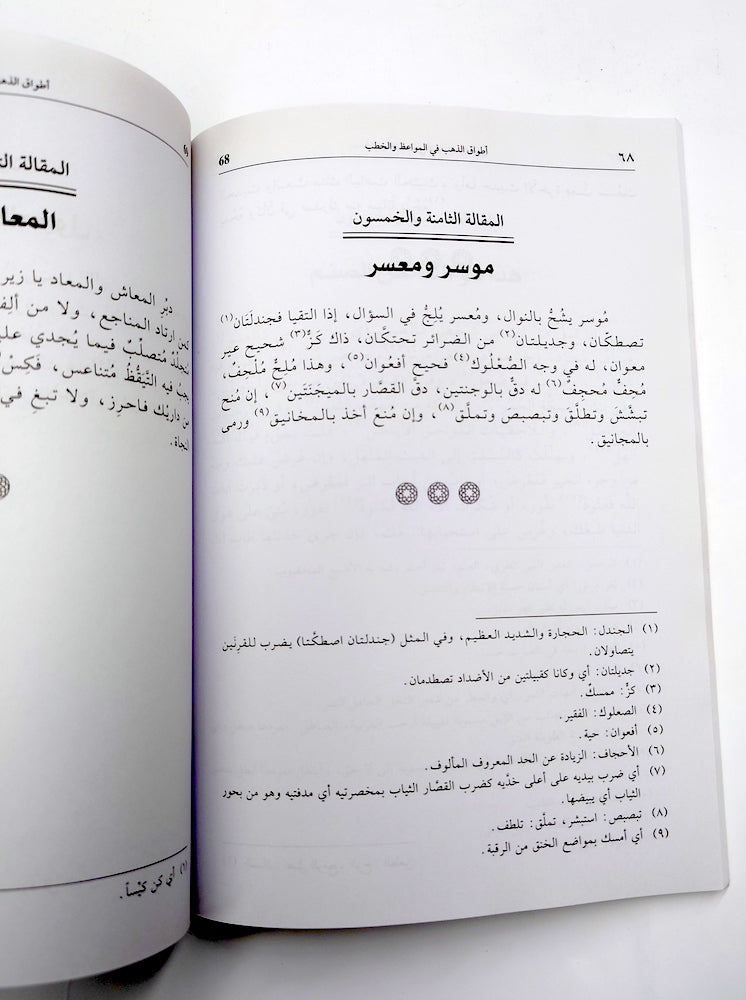 ٦٨
أطواق الذهب في المواعظ والخطب
68
المقالة الثامنة والخمسون
موسر ومعسر
مُوسر يشُحُّ بالنوال، ومُعسر يُلِحُّ في السؤال، إذا التقيا فجندلَتَان(١)
تصطكّان، وجديلتان(٢) من الضرائر تحتكَّان، ذاك كَزٌّ(٣) شحيح غير
معوان، له في وجه الصُّعْلُوك(٤) فحيح أفعُوان(٥)، وهذا مُلِحٌّ مُلْحِفٌ،
مُجِفٌّ مُجحِفٌ(٦) له دقٌّ بالوجنتين، دقَّ القصَّار بالميجَنَتَين(٧)، إن مُنح
تبشَّشَ وتطلَّقَ وتبصبصَ وتملَّق(٨)، وإن مُنعَ أخذ بالمخانيق(٩) ورمى
بالمجانيق.
(١) الجندل: الحجارة والشديد العظيم، وفي المثل (جندلتان اصطكّتا) يضرب للقرنَين
يتصاولان.
(٢) جديلتان: أي وكانا كقبيلتين من الأضداد تصطدمان.
(٣) كزٌّ: ممسكٌ.
(٤) الصعلوك: الفقير.
(٥) أفعوان: حية.
(٦) الأحجاف: الزيادة عن الحد المعروف المألوف.
(٧) أي ضرب بيديه على أعلى خدَّيه كضرب القصَّار الثياب بمخصرتيه أي مدقتيه وهو من بحور
الثياب أي يبيضها.
(٨) تبصبص: استبشر، تملَّق: تلطف.
(٩) أي أمسك بمواضع الخنق من الرقبة.
أطواق الذهب
المقالة
المعا
دبُر المعاش والمعاد يا زير
ارتاد المناجع، ولا من ألِف
مُتصلِّبٌ فيما يُجدي
فيه التَّيَقُّظُ مُتناعس، فَكِسْ
داريْك فاحرِز، ولا تبغِ في
النجاة.
(١) أي كن كيّساً.